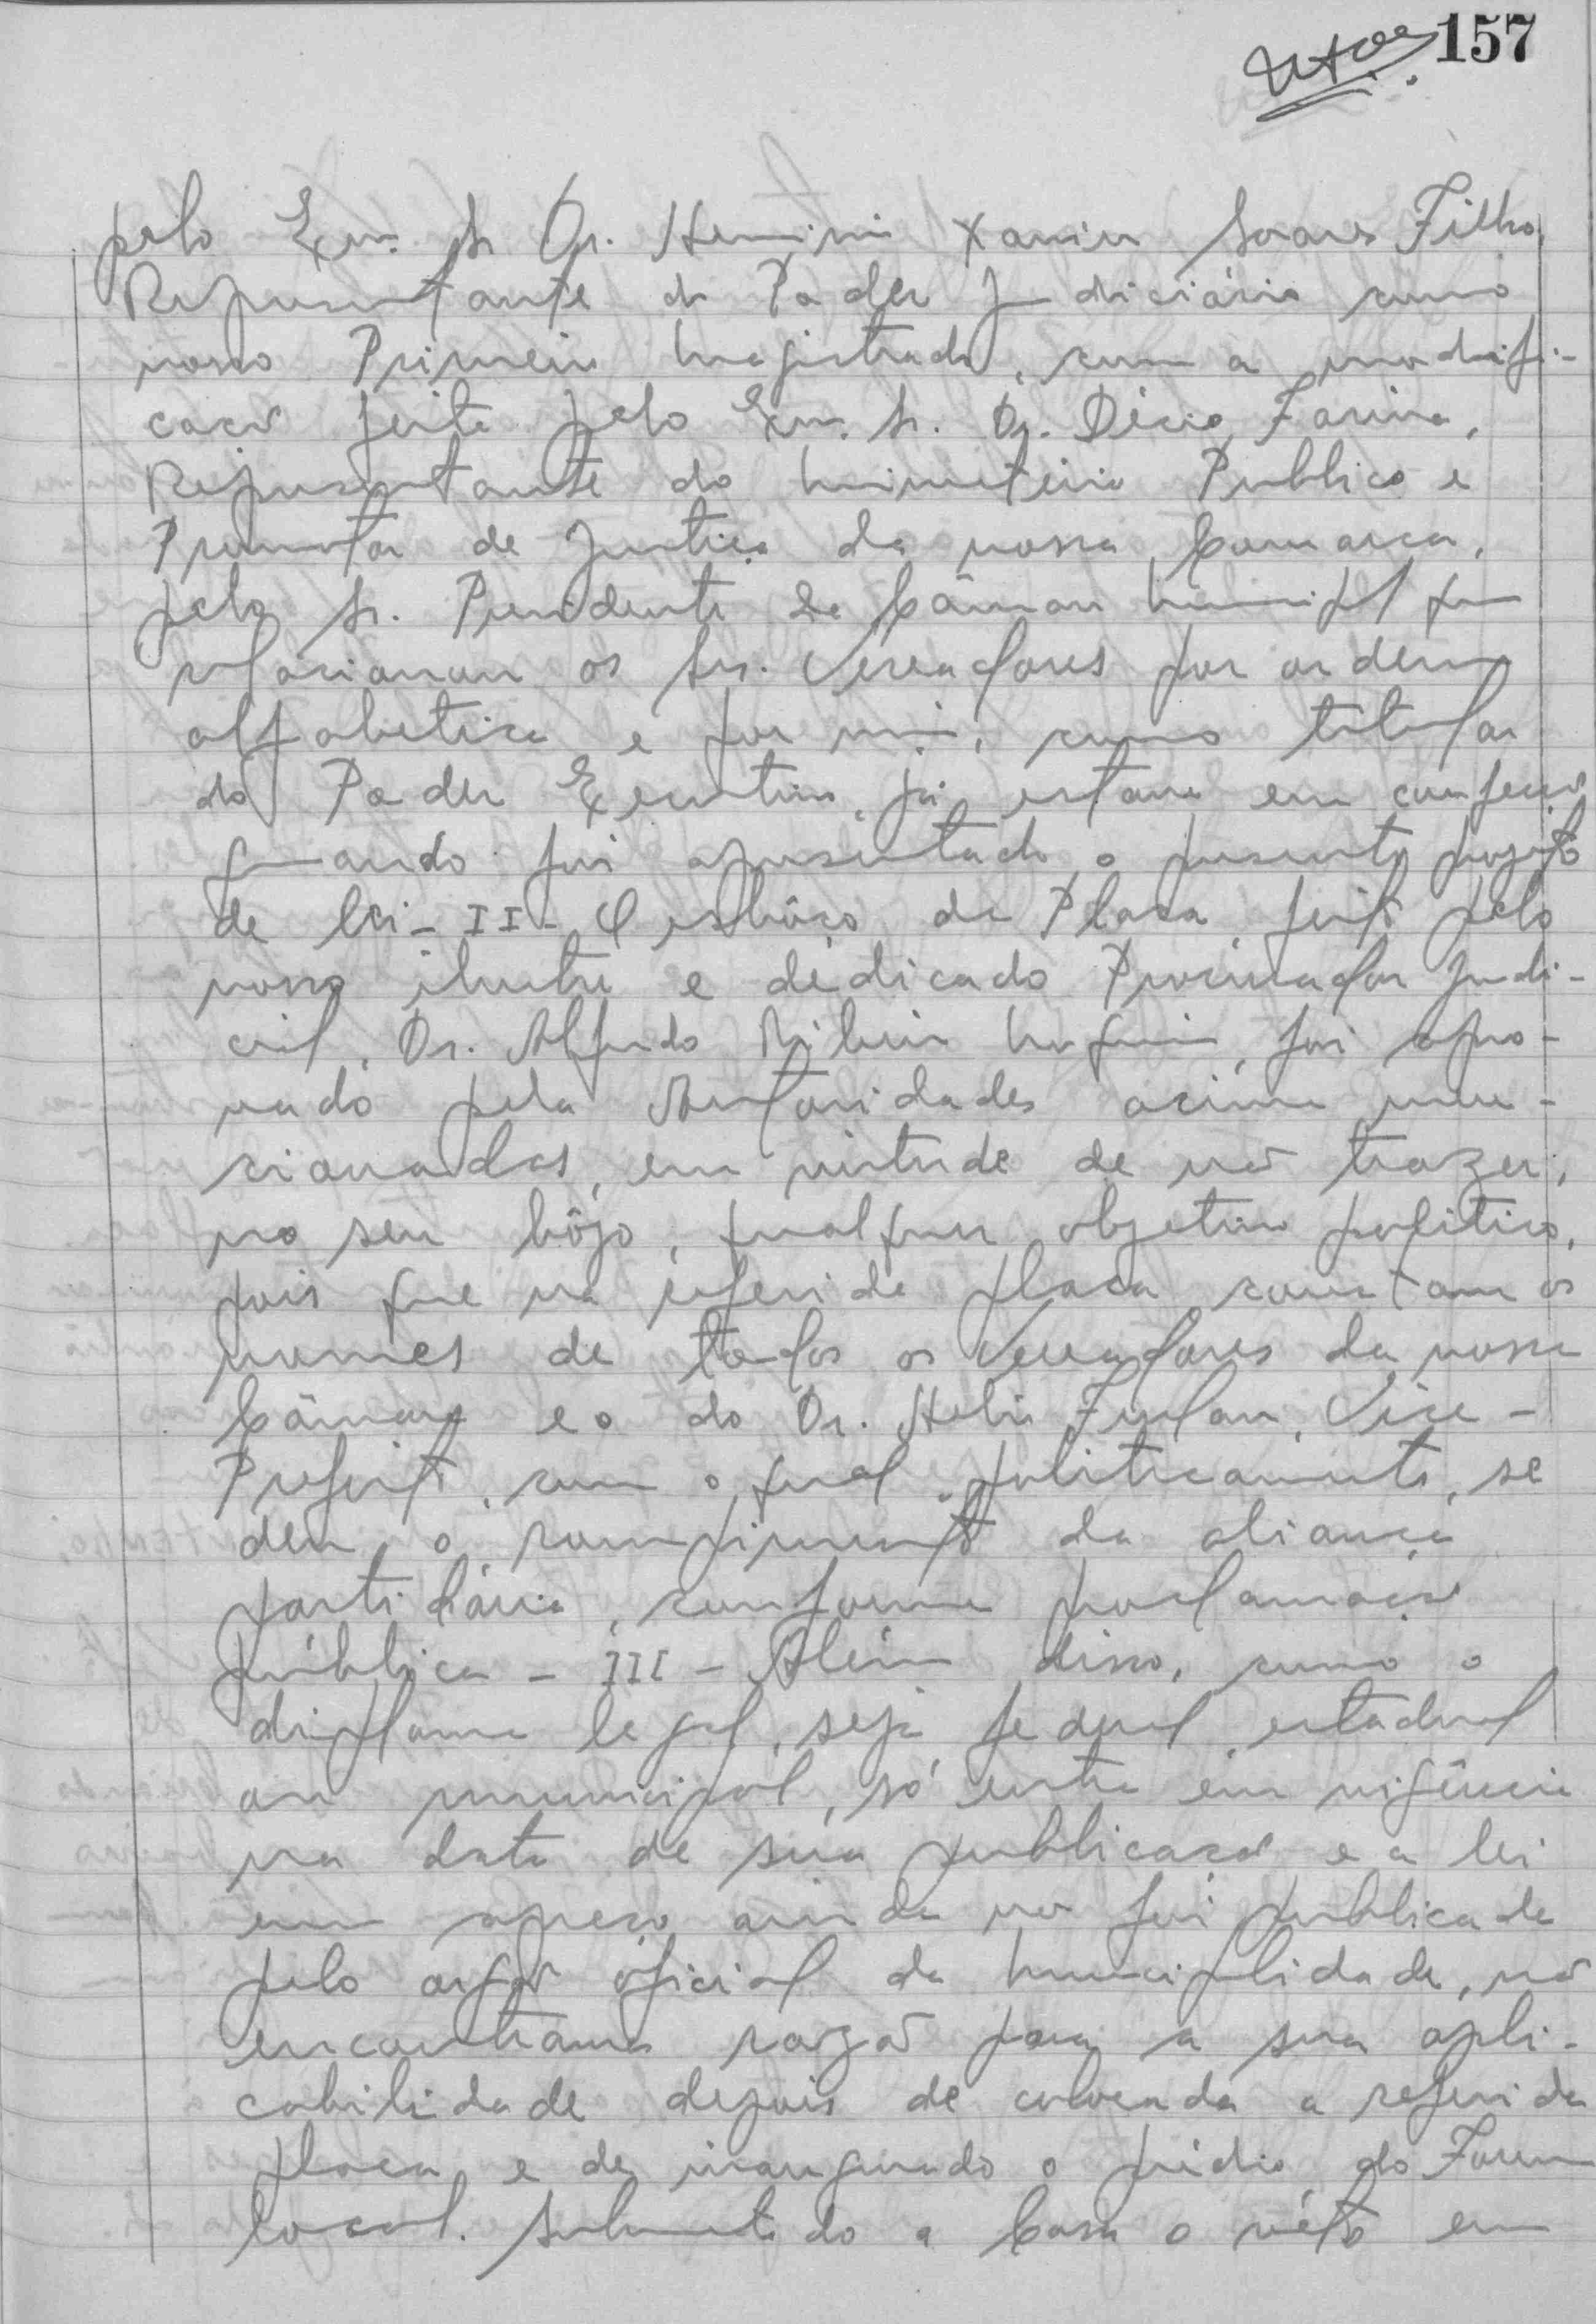 157
pelo Exmo. Sr. Dr. Xavier Soares Filho,
Representante do Poder Judiciário como
nosso Primeiro Magistrado, com a modifi-
cação feita pelo Exmo. Sr. Dr. Décio Farina,
Representante do Ministério Publico e
Promotor de Justiça da nossa Comarca,
pelo Sr. Presidente da Câmara Municipal que
relacionou os Srs. Vereadores por ordem
alfabetica e por mim, como titular
do Poder Executivo, já estava em confecção
quando foi apresentado o presente projeto
de lei - II - O esbôço da Placa, feito pelo
nosso ilustre e dedicado Procurador Judi-
cial, Dr. Alfredo Ribeiro, foi apro-
vado pela Autoridades acima men-
cionadas, em virtude de não trazer,
no seu bôjo, qualquer objetivo politico,
pois que na referida placa constam os
nomes de todos os Vereadores da nossa
Câmara e o do Dr. Helio Furlan, Vice-
Prefeito, com o qual, politicamente, se
deu o rompimento da aliança
partidária, conforme proclamação
pública - III - Além disso, como o
diploma legal, seja federal, estadual
ou municipal, só entra em vigência
na data de sua publicação e a lei
em apreço ainda não foi publicada
pelo orgão oficial da Municipalidade, não
encontramos razão para a sua apli-
cabilidade depois de colocada a referida
placa e de inaugurado o prédio do Forum
local. Submetido a Casa o véto em